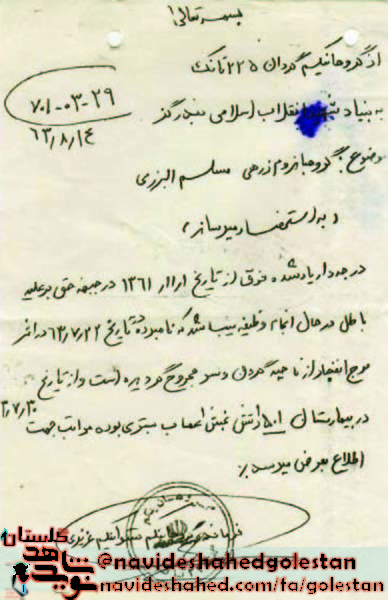 بسمه تعالی
از گروهان یکم گردان ۲۲۵ تانک
۷۰۱-۰۳-۲۹
به بنیاد شهید انقلاب اسلامی بندرگز
۶۳/۸/۱۴
موضوع: گروهبان دوم زرهی مسلم البرزی
به استحضار میرساند
درجه دار یاد شده فوق از تاریخ ۱۳۶۱ در جبهه حق بر علیه
باطل در حال انجام وظیفه میباشد که نامبرده در تاریخ ۶۳/۷/۲۲ در اثر
موج انفجار از ناحیه گردن و سر مجروح گردیده است و از تاریخ
در بیمارستان ۵۰۱ ارتش بخش اعصاب بستری بوده مراتب جهت
اطلاع بعرض میرسد
فرمانده گروهان یکم
نوید شاهد گلستان
@navideshahedgolestan
navideshahed.com/fa/golestan